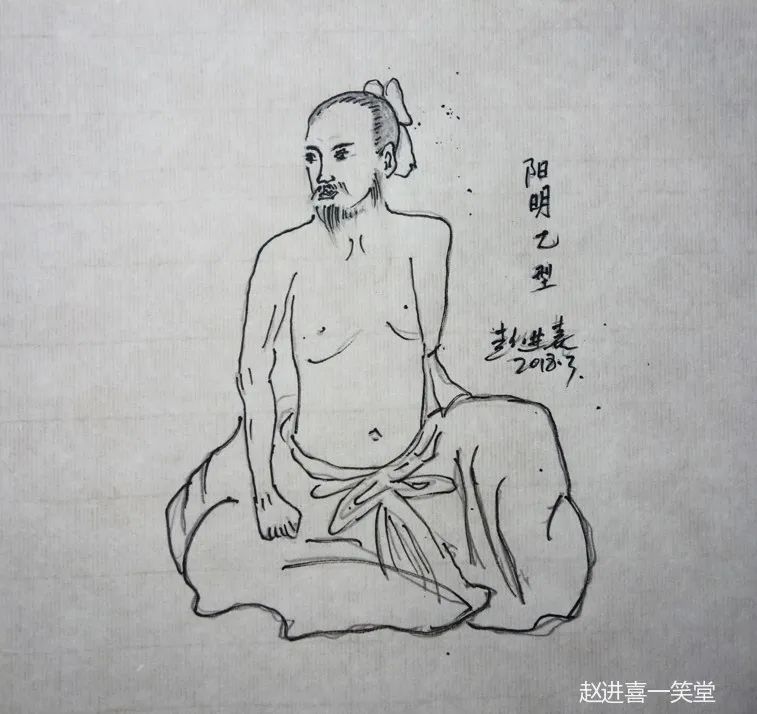 阳明乙型
赵进喜
2018.3.
赵进喜一笑堂